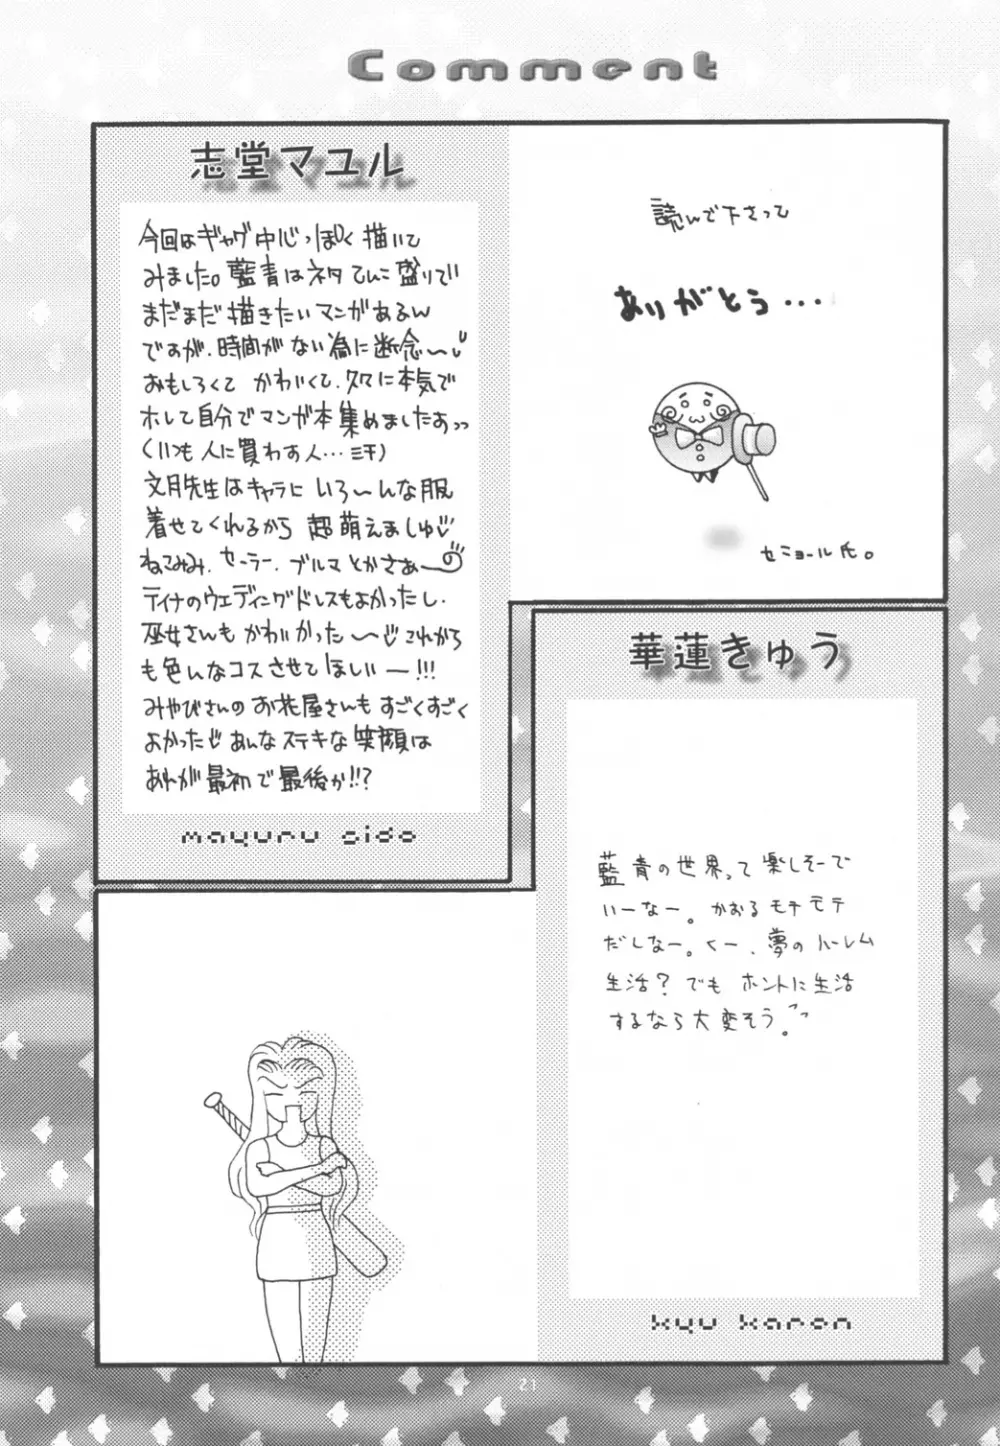 Comment
志堂マユル
今回はギャグ中心っぽく描いて
みました。藍青はネタてんこ盛りで
まだまだ描きたいマンガあるん
ですが、時間がない為に断念〜
おもしろくて かわいくて、久々に本気で
ホレて自分でマンガ本集めましたぁっっ
(いつも人に買わす人…汗)
文月先生はキャラに いろ〜んな服
着せてくれるから 超萌えましゅ
ねこみみ、セーラー、ブルマとかさぁー
ティナのウェディングドレスもよかったし、
巫女さんも かわいかった〜 これから
も色んなコスさせてほしいー!!!
みやびさんの お花屋さんも すごくすごく
よかった あんなステキな笑顔は
あれが最初で最後か!!?
mayuru sido
読んで下さって
ありがとう...
セミョール氏。
華蓮きゅう
藍青の世界って 楽しそーで
いーなー。かおるモテモテ
だしなー。くー、夢のハーレム
生活? でも ホントに生活
するなら大変そう。
kyu karen
21